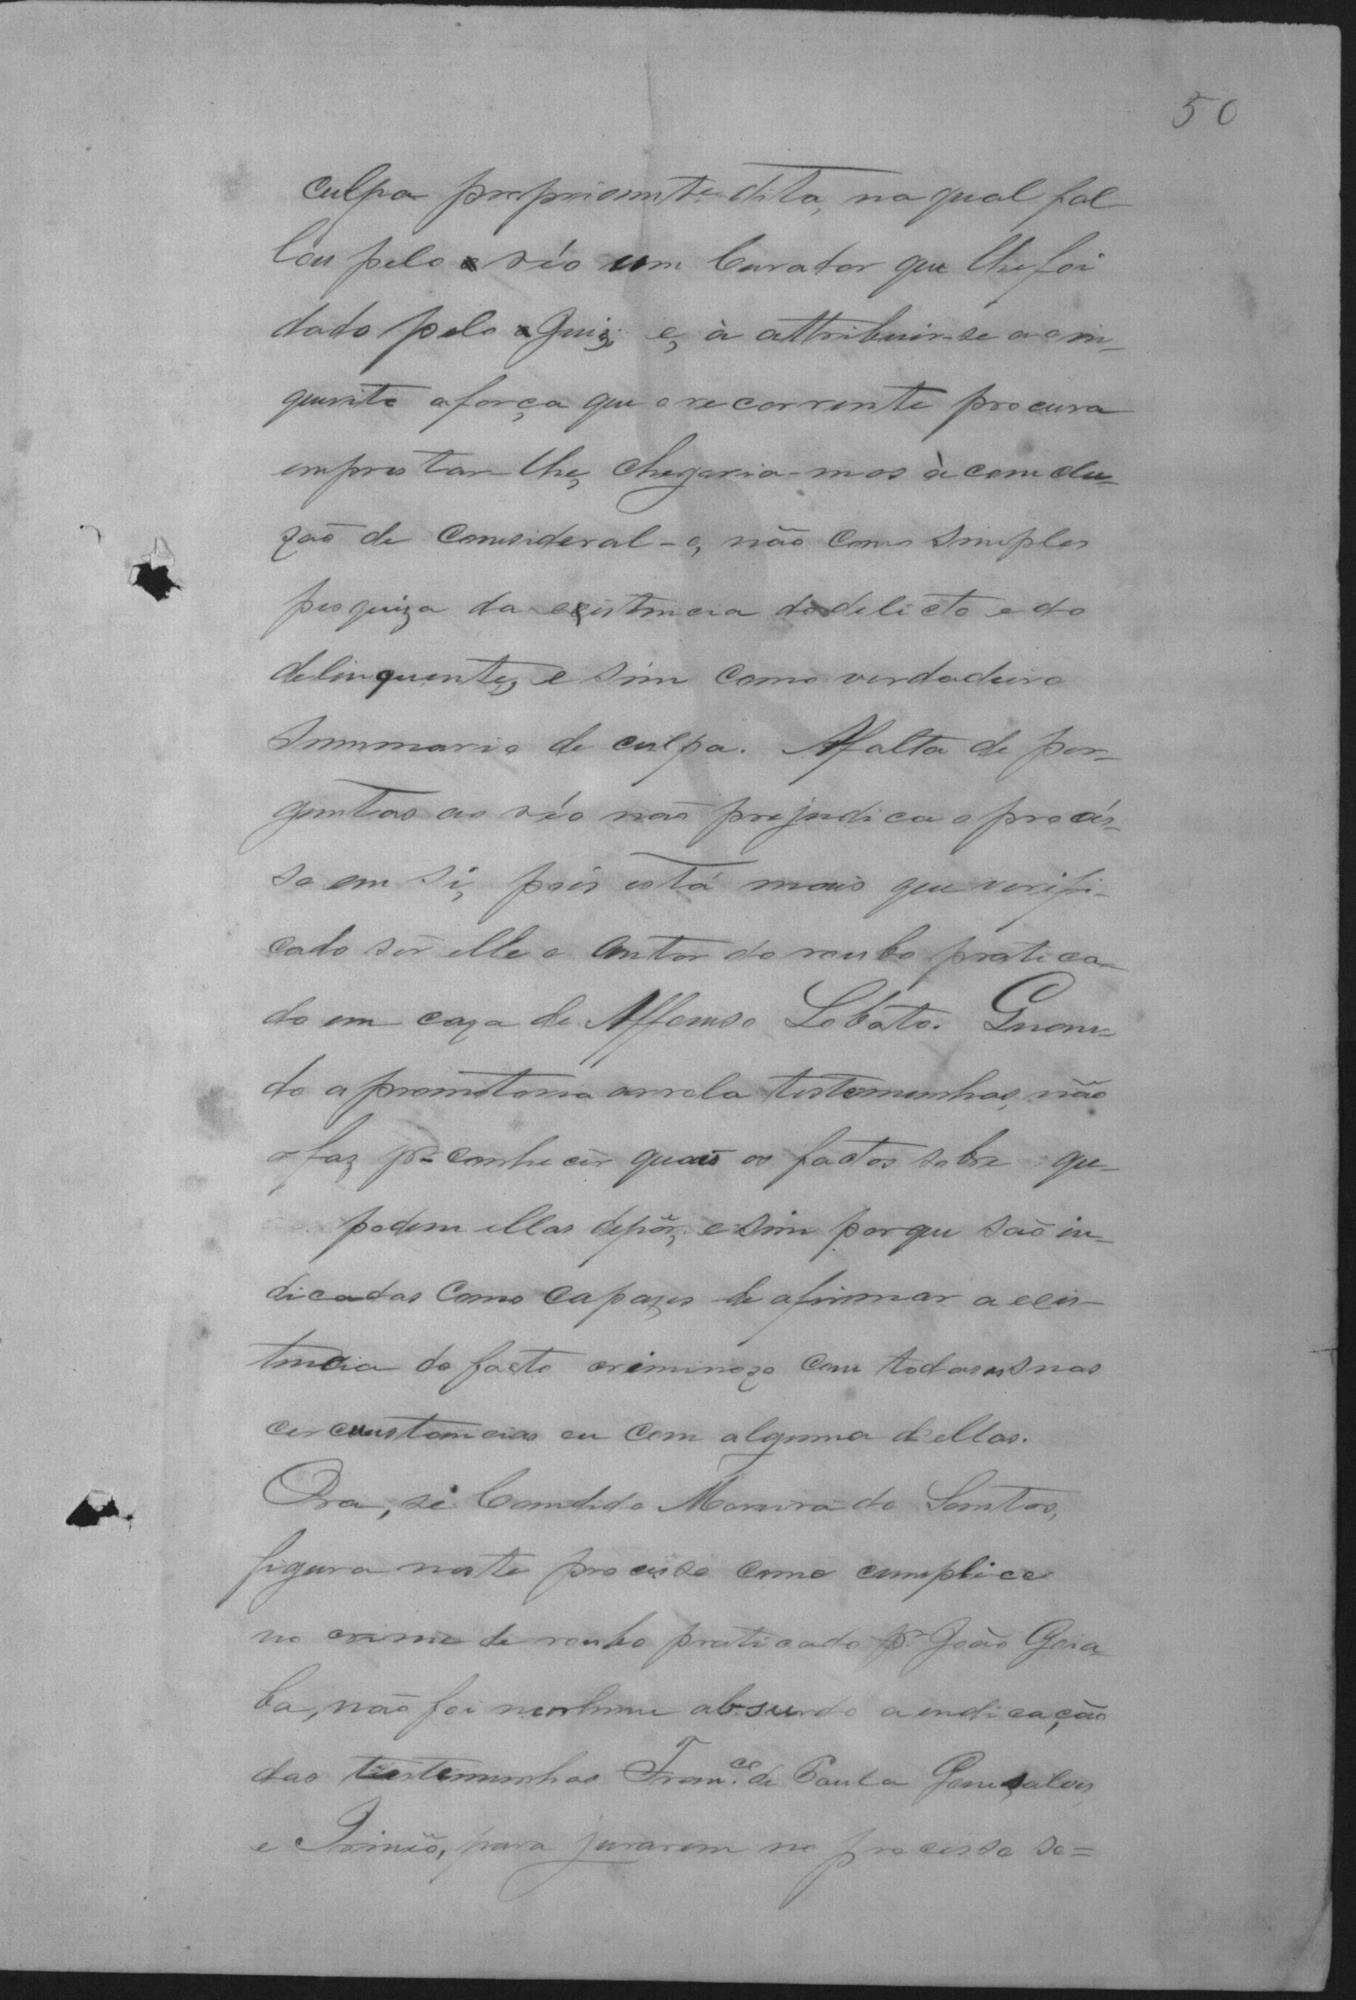 50
culpa propriamente dita, na qual fal
lou pelo réo um Curador que lhe foi
dado pelo Juiz; e, à attribuir-se ao in-
querito a força que o recorrente procura
emprestar-lhe, chegaria-mos à conclu-
zaõ de consideral-o, não como simples
pesquiza da existencia do delicto e do
delinquente, e sim como verdadeiro
summario de culpa. A falta de per-
guntas ao réo naõ prejudica o procés-
so em si, pois está mais que verifi-
cado ser elle o autor do roubo pratica-
do em caza de Affonso Lobato. Quan-
do a promotoria arrola testemunhas, não
o faz pr conhecer quaes os factos sobre que
podem ellas depôr, e sim porque saõ in-
dicadas como capazes de afirmar a exis-
tencia do facto criminozo com todas as suas
circunstancias ou com alguma d'ellas.
Ora, si Candido Moreira do Santos,
figura neste processo como cumplice
no crime de roubo praticado pr João Goia
ba, não foi nenhum absurdo a indicação
das testemunhas Franco. de Paula Gonçalves,
e para jurarem no processo so=